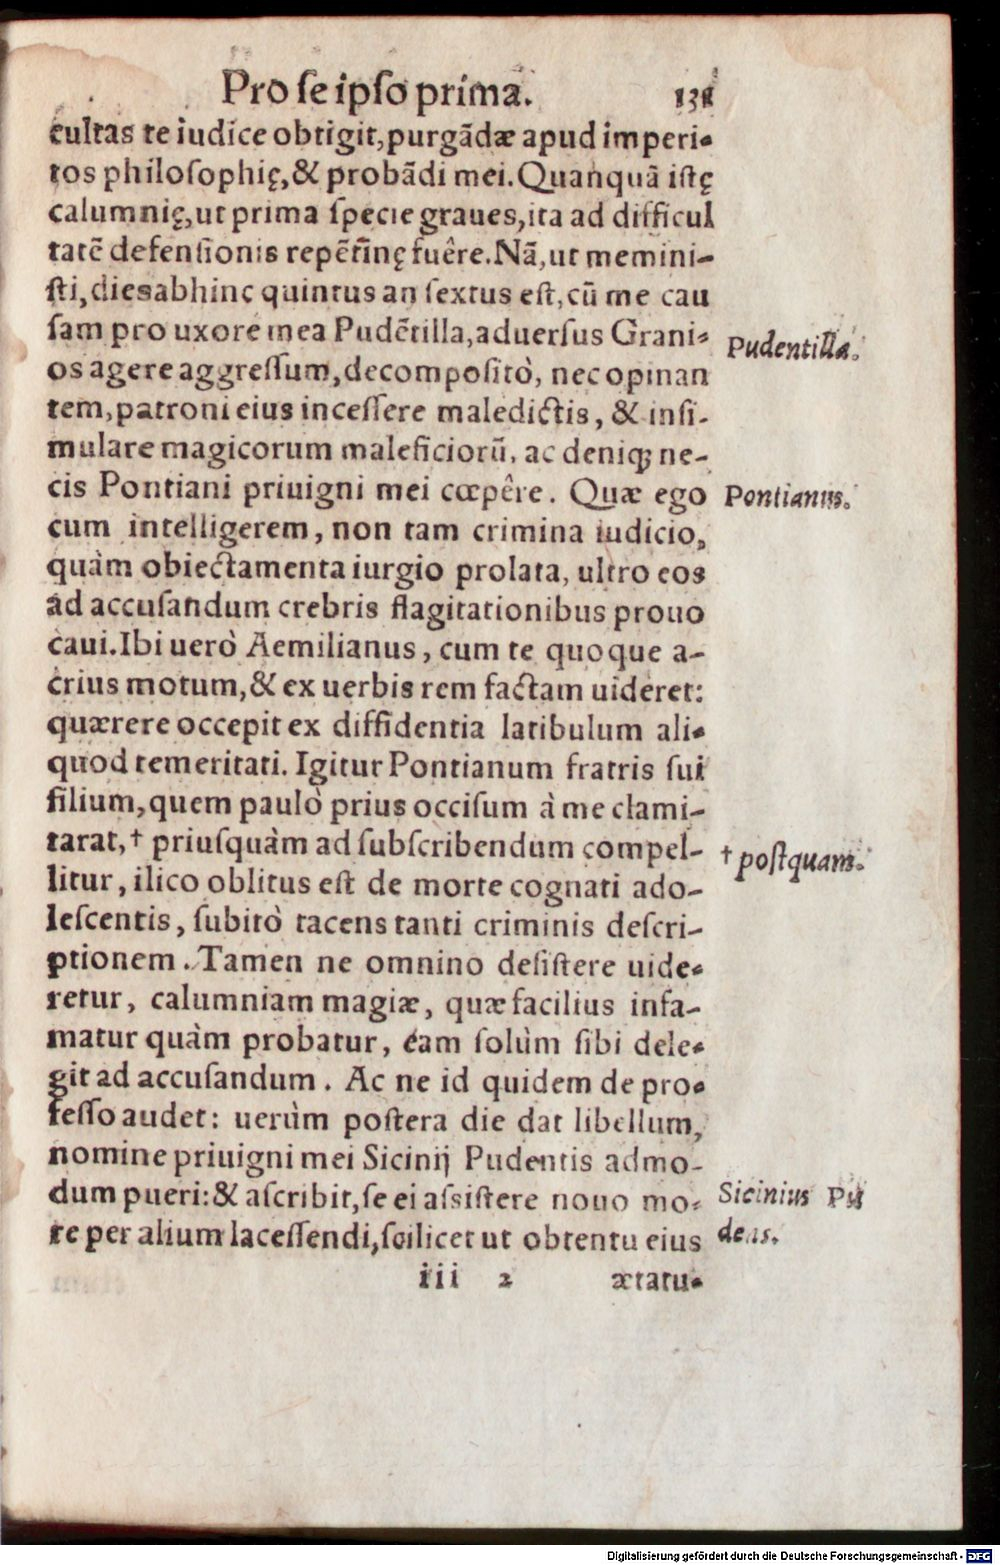 Pro ſe ipſo prima. 131
cultas te iudice obtigit, purgãdæ apud imperi-
tos philoſophię, & probãdi mei. Quanquã iſtę
calumnię, ut prima ſpecie graues, ita ad difficul
tatẽ defenſionis repẽtinę fuêre. Nã, ut memini-
ſti, dies abhinc quintus an ſextus eſt, cũ me cau
ſam pro uxore mea Pudẽtilla, aduerſus Grani-
Pudentilla.
os agere aggreſſum, de compoſitò, nec opinan
tem, patroni eius inceſſere maledictis, & inſi-
mulare magicorum maleficiorũ, ac deniq; ne-
cis Pontiani priuigni mei cœpêre. Quæ ego
Pontianus.
cum intelligerem, non tam crimina iudicio,
quàm obiectamenta iurgio prolata, ultro eos
ad accuſandum crebris flagitationibus prouo
caui. Ibi uerò Aemilianus, cum te quoque a-
crius motum, & ex uerbis rem factam uideret:
quærere occepit ex diffidentia latibulum ali-
quod temeritati. Igitur Pontianum fratris ſui
filium, quem paulò prius occiſum à me clami-
tarat, † priuſquàm ad ſubſcribendum compel-
† poſtquam.
litur, ilico oblitus eſt de morte cognati ado-
leſcentis, ſubitò tacens tanti criminis deſcri-
ptionem. Tamen ne omnino deſiſtere uide-
retur, calumniam magiæ, quæ facilius infa-
matur quàm probatur, eam ſolùm ſibi dele-
git ad accuſandum. Ac ne id quidem de pro-
feſſo audet: uerùm poſtera die dat libellum,
nomine priuigni mei Sicinij Pudentis admo-
dum pueri: & aſcribit, ſe ei aſsiſtere nouo mo-
Sicinius Pu
re per alium laceſſendi, ſcilicet ut obtentu eius
dens.
iii 2 ætatu-
Digitalisierung gefördert durch die Deutsche Forschungsgemeinschaft - DFG